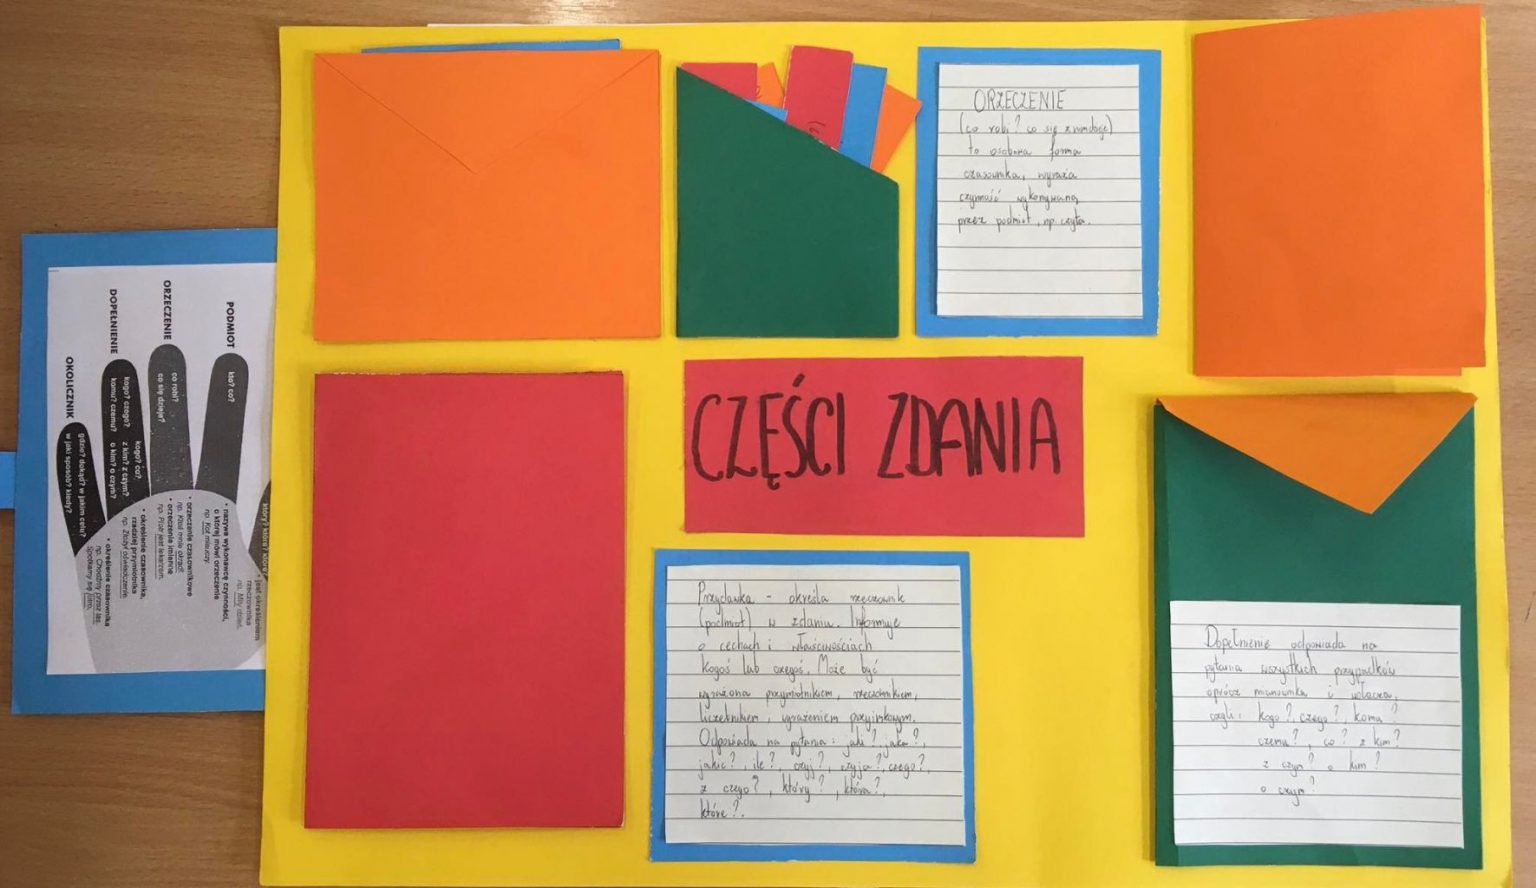 ORZECZENIE
(co robi? co się znajduje)
to osobowa forma
czasownika, wyraża
czynność wykonywaną
przez podmiot, np. czyta.
CZĘŚCI ZDANIA
Przydawka - określa rzeczownik
(podmiot) w zdaniu. Informuje
o cechach i właściwościach
kogoś lub czegoś. Może być
wyrażona przymiotnikiem, rzeczownikiem,
liczebnikiem, wyrażeniem przyimkowym.
Odpowiada na pytania: jaki?, jaka?,
jakie?, ile?, czyj?, czyja?, czego?,
z czego?, który?, która?,
które?.
Dopełnienie odpowiada na
pytania wszystkich przypadków
oprócz mianownika i wołacza,
czyli: kogo?, czego?, komu?
czemu?, co? z kim?
z czym? o kim?
o czym?
PODMIOT
kto? co?
• nazywa wykonawcę czynności,
o której mówi orzeczenie
np. Kot miauczy.
ORZECZENIE
co robi?
co się dzieje?
• orzeczenie czasownikowe
np. Ktoś mnie okradł.
• orzeczenie imienne
np. Piotr jest lekarzem.
DOPEŁNIENIE
kogo? czego? kogo? co?
komu? czemu? z kim? z czym?
o kim? o czym?
• określenie czasownika,
rzadziej przymiotnika
np. Złożył oświadczenie.
OKOLICZNIK
gdzie? dokąd? w jakim celu?
w jaki sposób? kiedy?
• określenie czasownika
np. Chodźmy przez las.
Spotkamy się jutro.
które?
• jest określeniem
rzeczownika
np. Miły dzień.